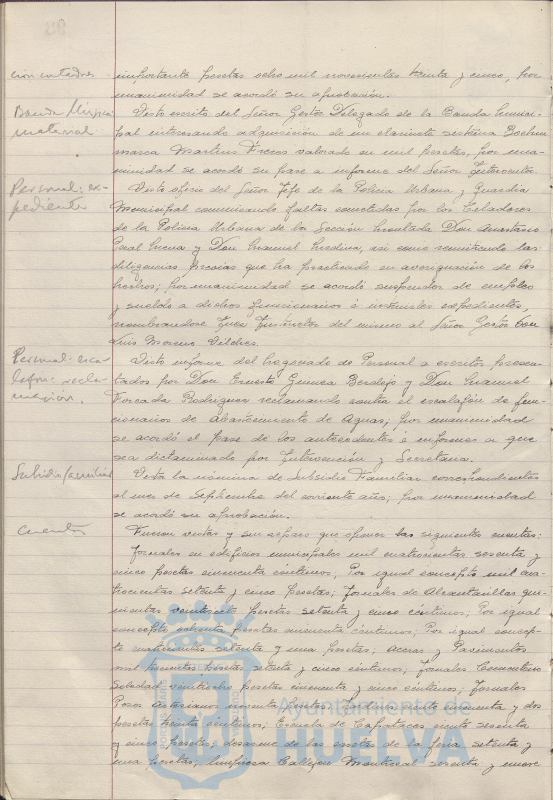 importante pesetas ocho mil novecientas treinta y cinco, por
unanimidad se acordó su aprobación.
Banda Música
material
Visto escrito del Señor Gestor Delegado de la Banda Munici-
pal interesando adquisición de un clarinete sistema Boehm
marca Martin Freres valorado en mil pesetas, por una-
nimidad se acordó su pase a informe del Señor Interventor.
Personal: ex-
pediente
Visto oficio del Señor Jefe de la Policia Urbana y Guardia
Municipal comunicando faltas cometidas por los Celadores
de la Policia Urbana de la Sección Montada Don Anastasio
y Don Manuel Medina, asi como remitiendo las
diligencias previas que ha practicado en averiguación de los
hechos; por unanimidad se acordó suspender de empleo
y sueldo a dichos funcionarios é instruirles expedientes,
nombrandose Juez Instructor del mismo al Señor Gestor Don
Luis Moreno Vilches.
Personal: esca-
lafon: recla-
mación.
Visto informe del Negociado de Personal a escritos presen-
tados por Don Ernesto Guinea Berdejo y Don Manuel
Forcada Rodriguez reclamando contra el escalafón de fun-
cionarios de Abastecimiento de Aguas; por unanimidad
se acordó el pase de los antecedentes é informes a que
sea dictaminado por Intervención y Secretaria.
Subsidio familiar
Vista la nómina de Subsidio Familiar correspondientes
al mes de Septiembre del corriente año; por unanimidad
se acordó su aprobación.
Cuentas
Fueron vistas y sin reparo que oponer las siguientes cuentas:
Jornales en edificios municipales mil cuatrocientas sesenta y
cinco pesetas cincuenta céntimos; Por igual concepto mil cua-
trocientas setenta y cinco pesetas; Jornales de Alcantarillas qui-
nientas veintiocho pesetas setenta y cinco céntimos; Por igual
concepto ochenta pesetas cincuenta céntimos; Por igual concep-
to cuatrocientas setenta y una pesetas; Aceras y Pavimentos
mil trescientas pesetas setenta y cinco céntimos; Jornales Cementerio
Soledad veintiocho pesetas cincuenta y cinco céntimos; Jornales
Pozos noventa pesetas; cincuenta y dos
pesetas treinta céntimos; Escuela de Capataces ciento sesenta
y cinco pesetas; desarme de las casetas de la feria setenta y
una pesetas; limpieza Callejon Montreal sesenta y nueve
Ayuntamiento de
HUELVA